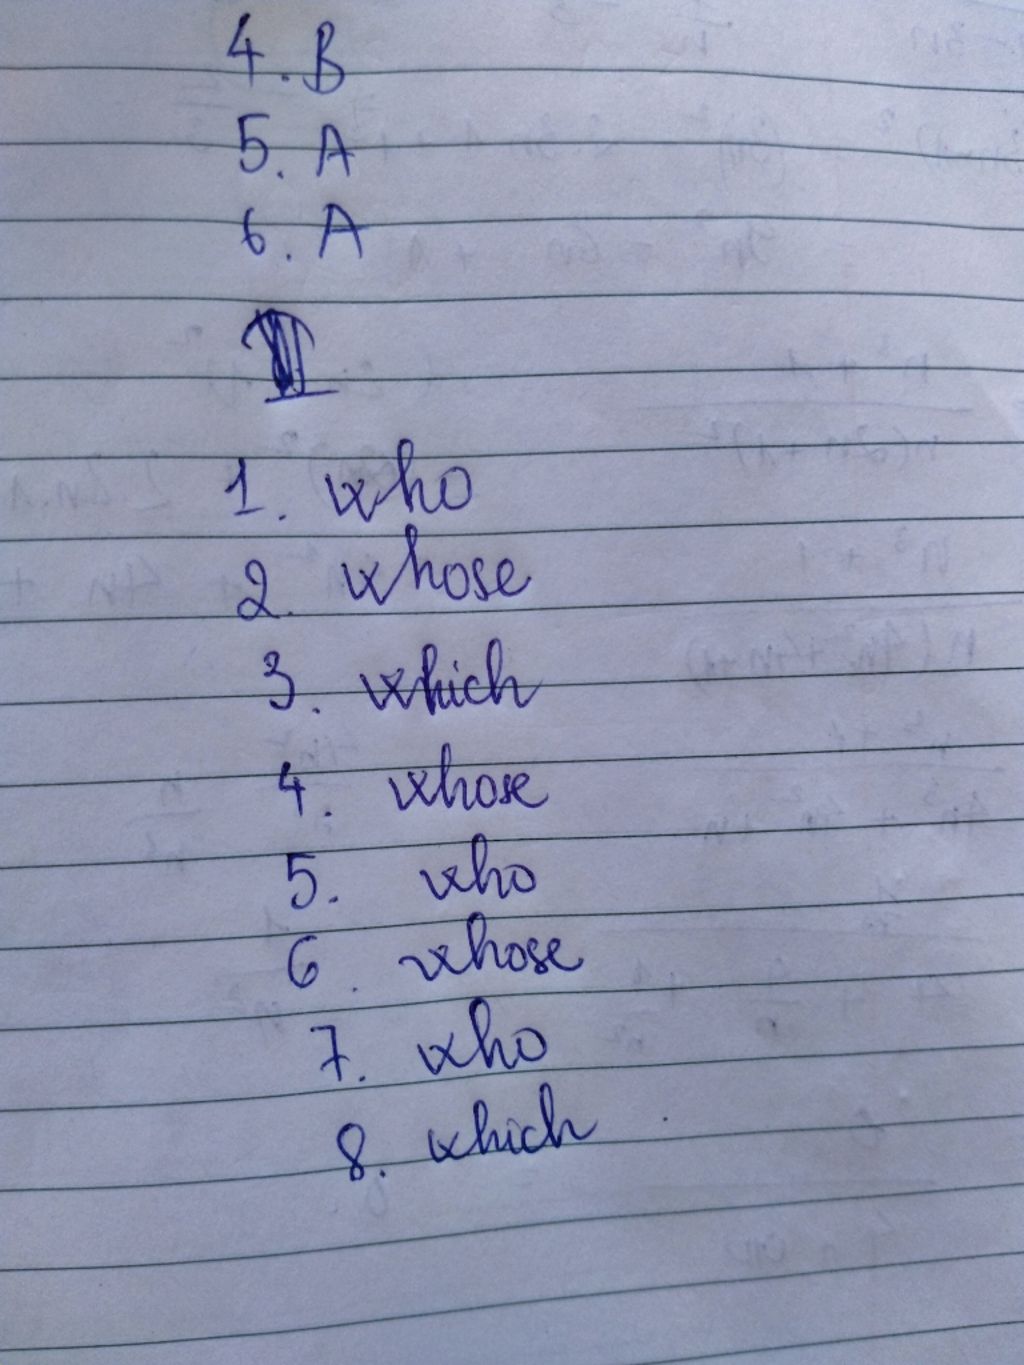 4. B
5. A
6. A
1. who
2. whose
3. which
4. whose
5. who
6. whose
7. who
8. which